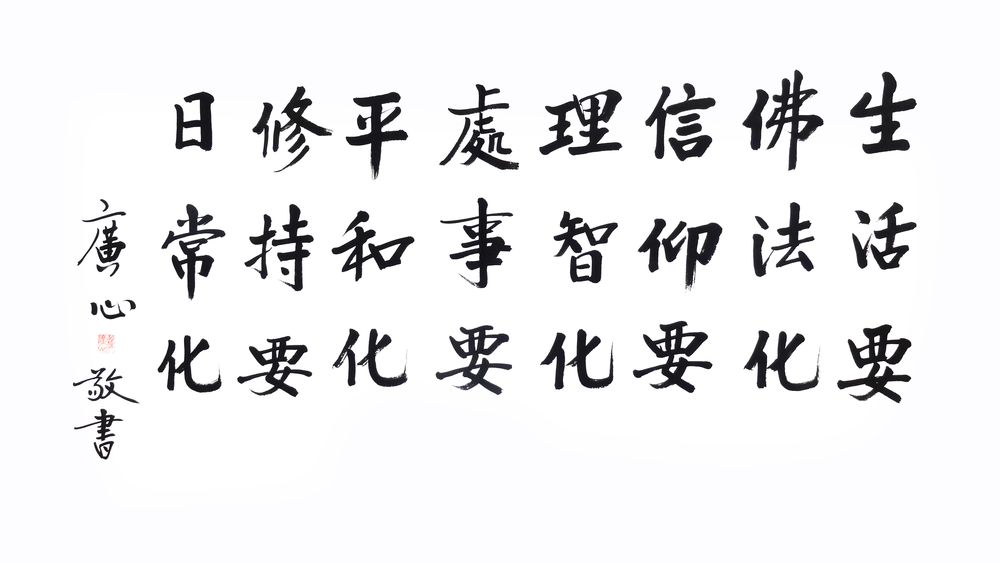 生活要
佛法化
信仰要
理智化
處事要
平和化
修持要
日常化
廣心敬書